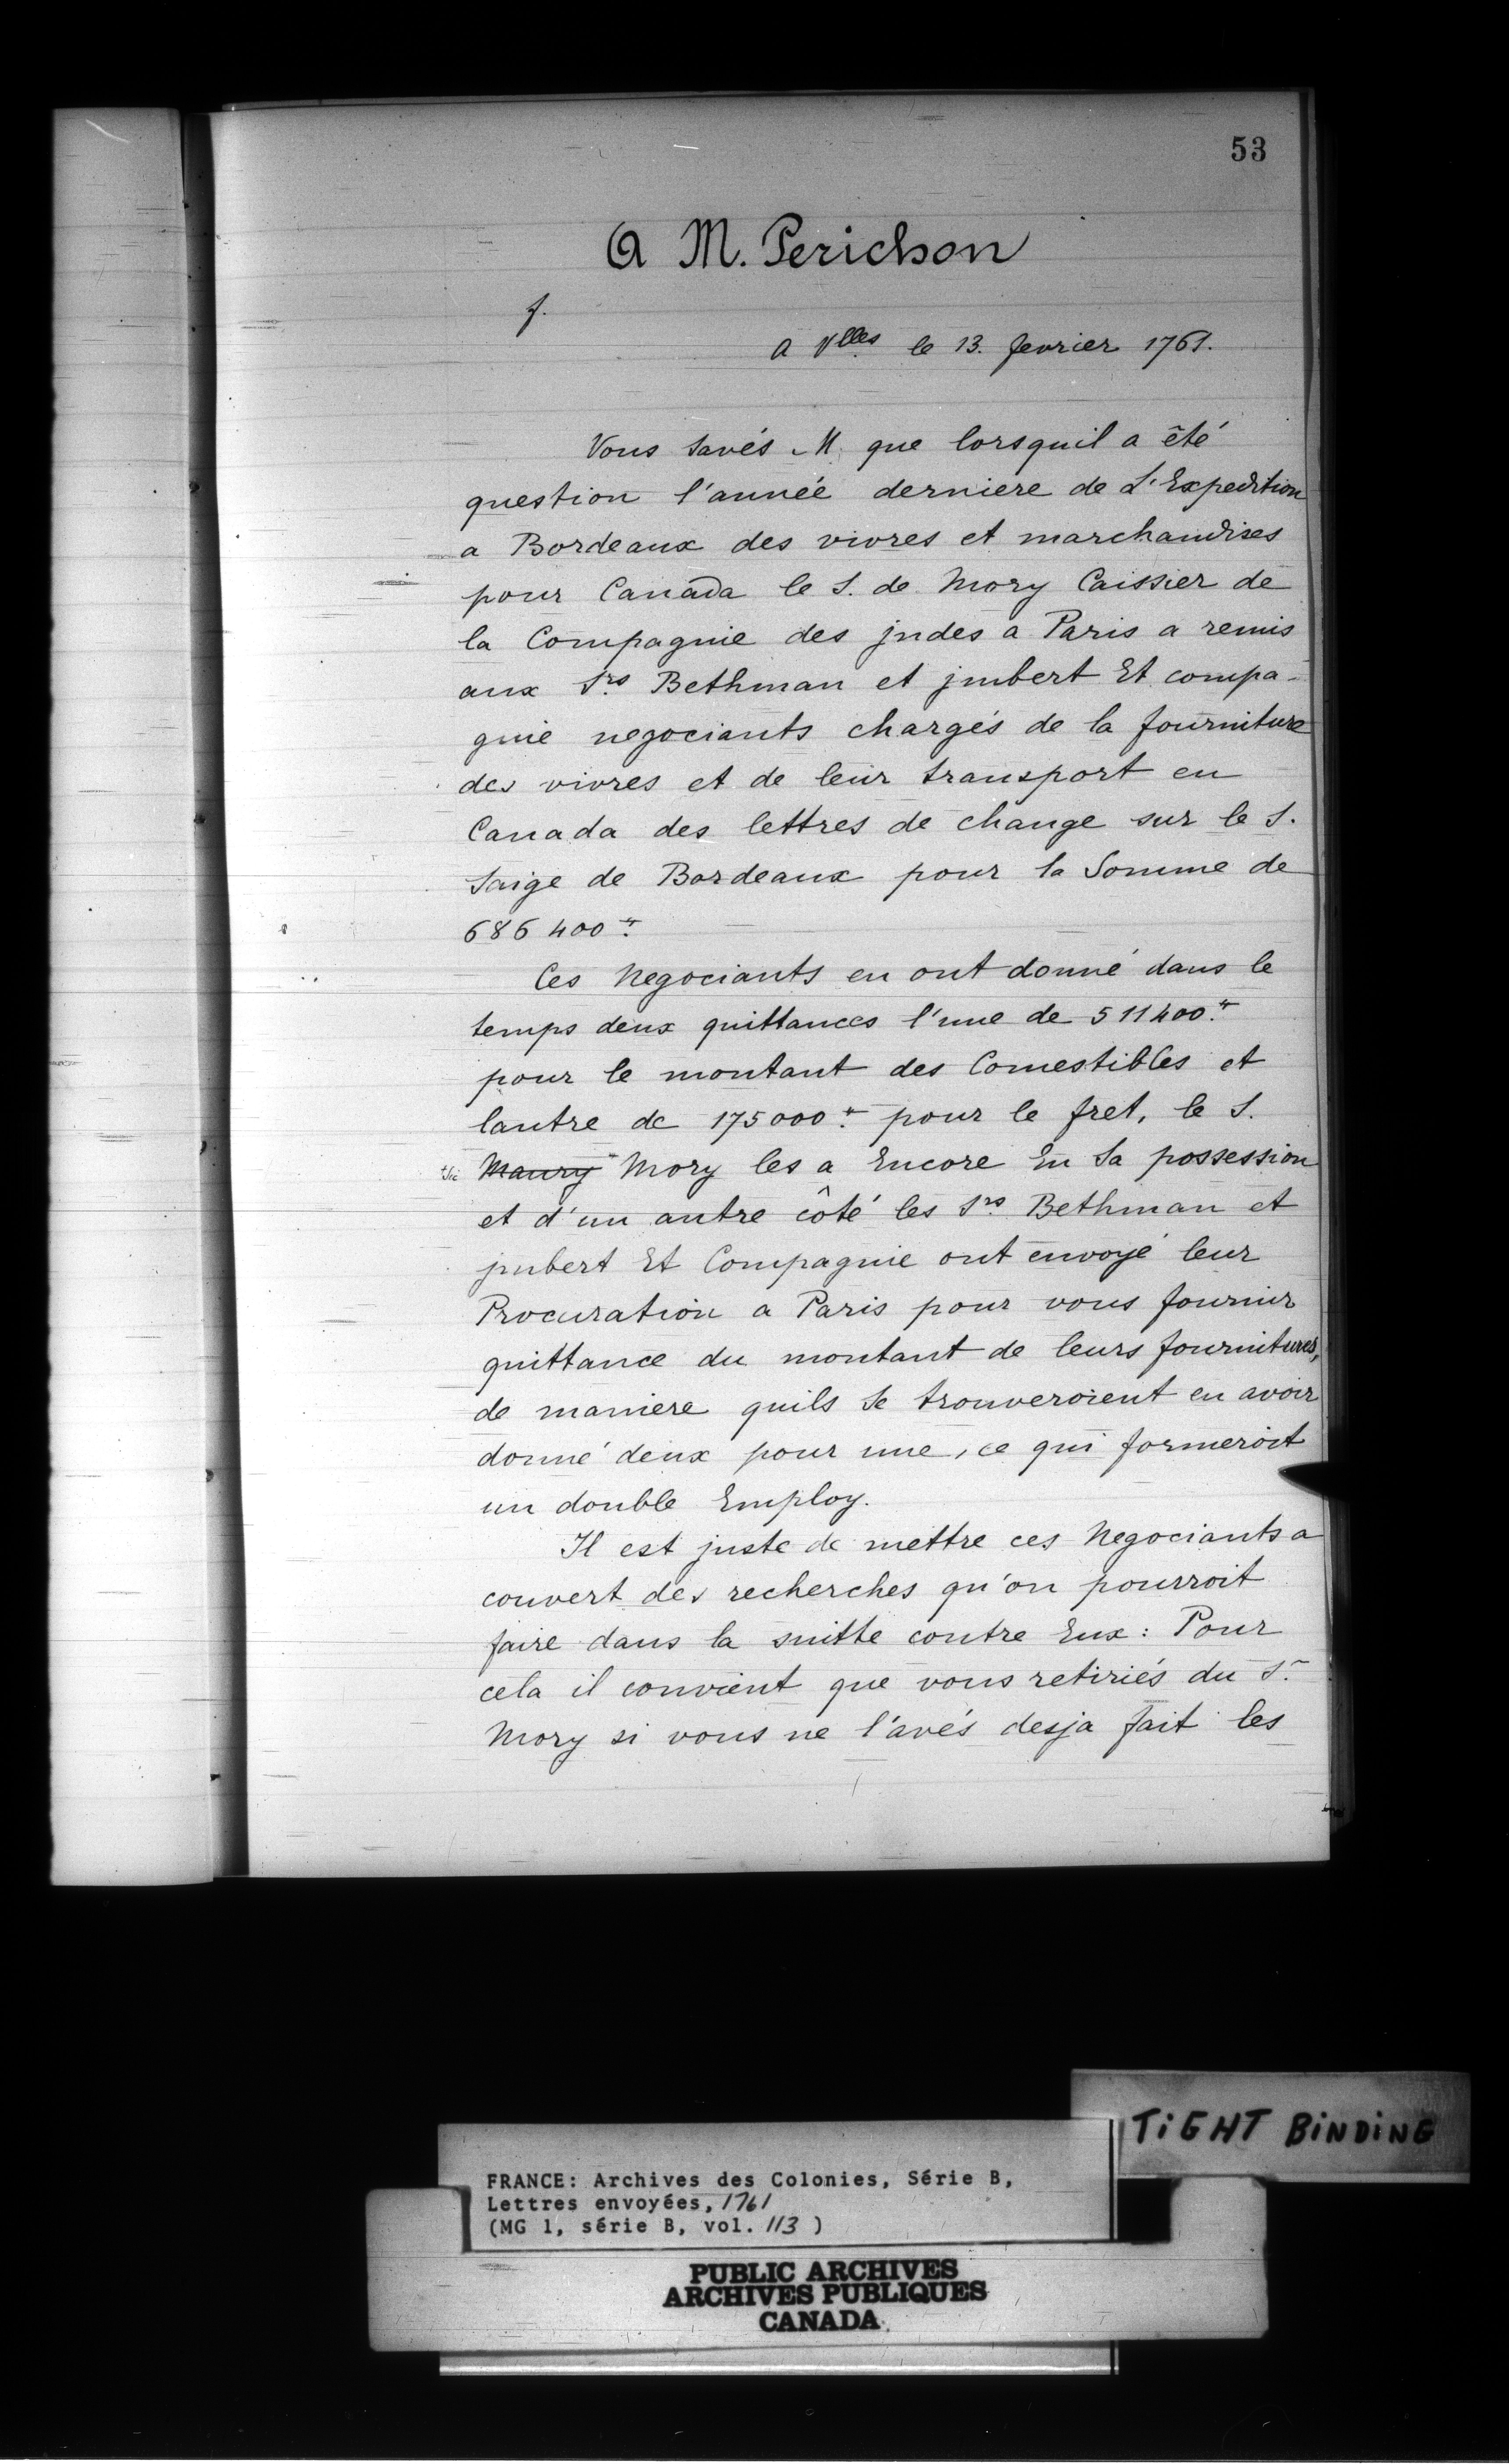 53
A M. Perichon
f.
A Vlles le 13. fevrier 1761.
Vous savés M. que lorsquil a êté
question l'année derniere de L'Expedition
a Bordeaux des vivres et marchandises
pour Canada le S. de Mory Caissier de
la Compagnie des jndes a Paris a remis
aux Srs Bethman et jmbert Et compa-
gnie negociants chargés de la fourniture
des vivres et de leur transport en
Canada des lettres de change sur le S.
Saige de Bordeaux pour la Somme de
686 400ᵗᵗ.
Ces Negociants en ont donné dans le
temps deux quittances l'une de 511400ᵗᵗ.
pour le montant des Comestibles et
lautre de 175000ᵗᵗ. pour le fret, le S.
sic Maury Mory les a Encore En Sa possession
et d'un autre côté les Srs Bethman et
jmbert Et Compagnie ont envoyé leur
Procuration a Paris pour vous fournir
quittance du montant de leurs fournitures,
de maniere quils Se trouveroient en avoir
donné deux pour une, ce qui formeroit
un double Employ.
Il est juste de mettre ces Negociants a
couvert des recherches qu'on pourroit
faire dans la suitte contre Eux : Pour
cela il convient que vous retiriés du Sr.
Mory si vous ne l'avés desja fait les
TIGHT BINDING
FRANCE: Archives des Colonies, Série B,
Lettres envoyées, 1761
(MG 1, série B, vol. 113 )
PUBLIC ARCHIVES
ARCHIVES PUBLIQUES
CANADA